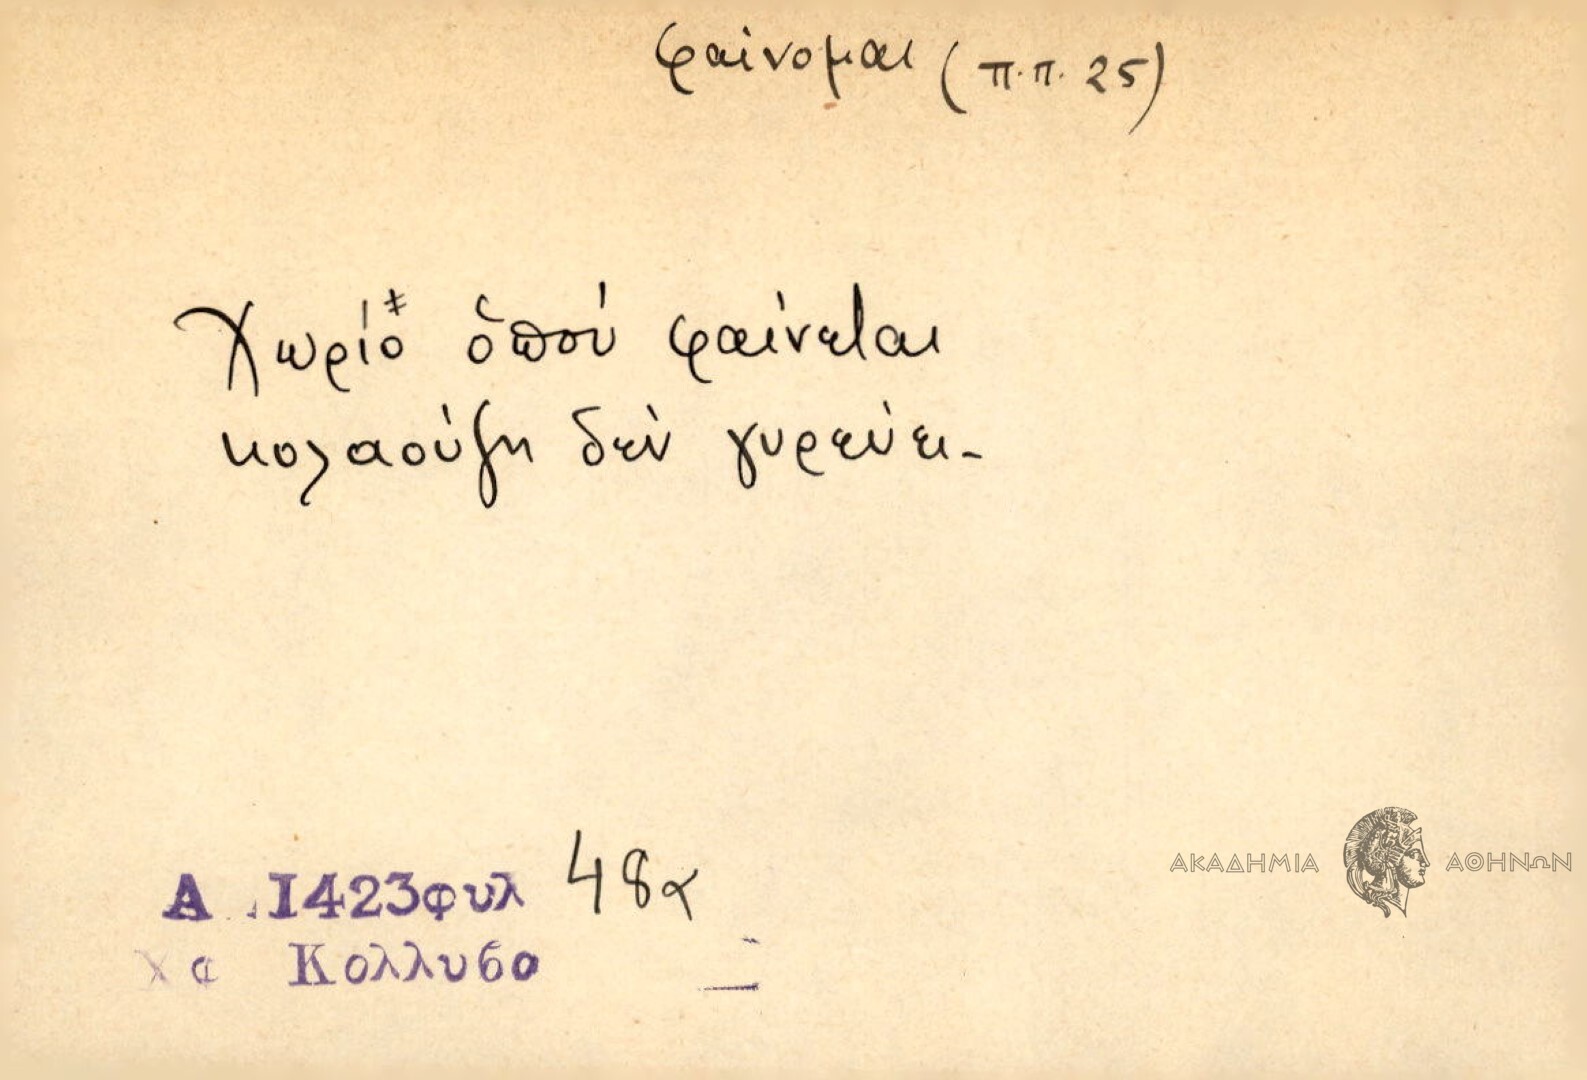 φαίνομαι (π.π. 25)
Χωρίο ὁποὺ φαίνεται
κολαούζη δὲν γυρεύει-
Α .1423φυλ 48α
Κολλυβο
ΑΚΑΔΗΜΙΑ ΑΘΗΝΩΝ